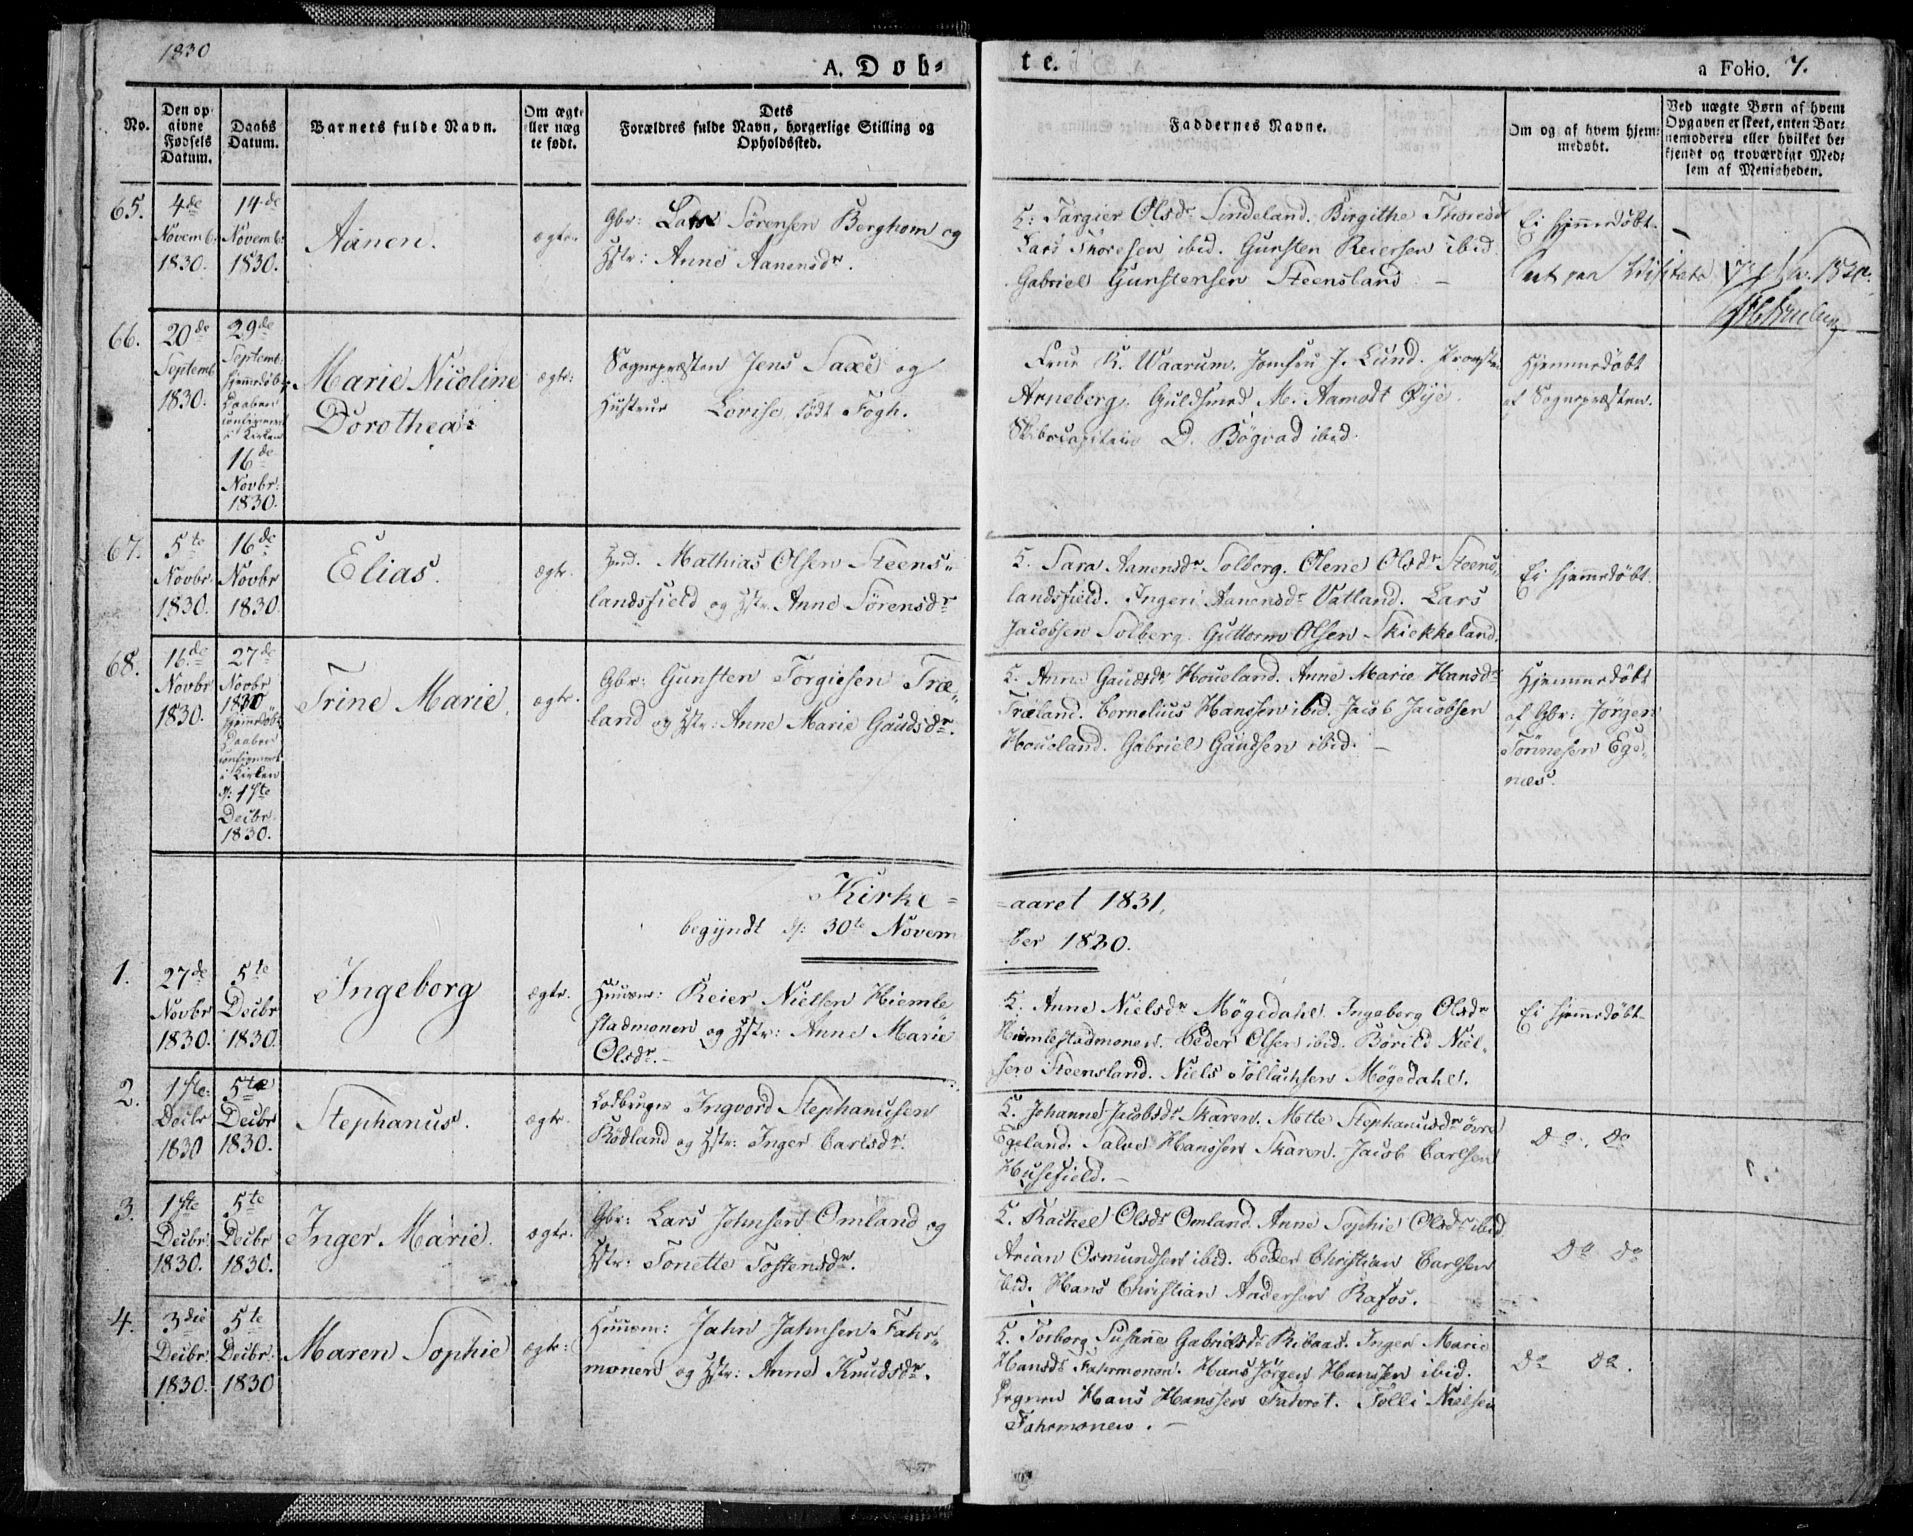 1830
A. Døb-
te.
a Folio. 7.
No.
Den opgivne Fødsels Datum.
Daabs Datum.
Barnets fulde Navn.
Om ægte eller nægte født.
Dets Forældres fulde Navn, borgerlige Stilling og Opholdssted.
Faddernes Navne.
Om og af hvem hjemmedøbt.
Ved nægte Børn af hvem Opgaven er skeet, enten Barnemoderen eller hvilket bekjendt og troværdigt Medlem af Menigheden.
65.
4de
Novemb:
1830.
14de
Novemb:
1830.
Aanen.
ægte
Gbr: Lars Sørensen Berghom og
Hstr: Anne Aanensdr.
K: Targier Olsdr Sindeland. Birgithe Thoresdr
Lars Thoresen ibid. Gunsten Reiersen ibid
Gabriel Gunstensen Steensland. —
Ei hjemmedøbt.
66.
20de
Septemb
1830.
29de
Septemb:
hjemmedøbt
Daaben
confirmeret
i Kirken
16de
Novbr.
1830.
Marie Nicoline
Dorothea
ægte:
Sognepræsten Jens Saxe og
Hustrue Lovise født Fogh.
Frue K. Waarum. Jomfru J. Lund. Provst
Arneberg. Guldsmed M. Aamodt Øÿe.
Skibscapitain D. Bøgvad ibid.
Hjemmedøbt
af Sognepræsten.
67.
5te
Novbr
1830.
16de
Novbr
1830
Elias.
ægte.
Hmd. Mathias Olsen Steens-
landsfield og Hstr. Anne Sørensdr
K. Sara Aanensdr Solberg. Olene Olsdr Steens-
landsfield. Ingeri Aanensdr Vatland. Lars
Jacobsen Solberg. Guttorm Olsen Skiekkeland.
Ei hjemmedøbt.
68.
16de
Novbr
1830.
27de
Novbr
1830
hjemmedøbt
Daaben
confirmeret
i Kirken
d: 1ste
Decbr.
1830.
Trine Marie.
ægte.
Gbr: Gunsten Torgiesen Træ-
land og Hstr: Anne Marie Gaudsdr.
K. Anne Gaudsdr Houeland. Anne Marie Hansdr
Træland. Cornelius Hanssen ibid. Jacob Jacobsen
Houeland. Gabriel Gaudsen ibid. —
Hjemmedøbt
af Gbr: Jørgen
Tønnesen Ege-
næs.
Kirke-
-aaret 1831.
begyndt d: 30te Novem
-ber 1830.
1.
27de
Novbr
1830.
5te
Decbr
1830.
Ingeborg
ægte.
Huusm: Reier Nielsen Hiemle
stadmonen og Hstr: Anne Marie
Olsdr. —
K. Anne Nielsdr Møgedahl. Ingeborg Olsdr
Hiemlestadmonen. Peder Olsen ibid. Børild Niel-
sen Steensland. Niels Tollachsen Møgedahl.
Ei hjemmedøbt
2.
1ste
Decbr
1830
5te
Decbr
1830.
Stephanus.
ægte.
Lodbruger Ingvord Stephanusen
Rødland og Hstr: Inger Carlsdr.
K. Johanne Jacobsdr Skaren. Mette Stephanusdr øvre
Egeland. Salve Hanssen Skaren. Jacob Carlsen
Husefield. —
Do. Do
3.
1ste
Decbr.
1830.
5te
Decbr
1830.
Inger Marie.
ægte.
Gbr: Lars Johnsen Omland og
Hstr: Tonette Tostensdr.
K. Rachel Olsdr Omland. Anne Sophie Olsdr ibid
Arian Osmundsen ibid. Peder Christian Carlsen
ibid. Hans Christian Andersen Rafos.
Do Do
4.
3die
Decbr.
1830.
5te
Decbr.
1830
Maren Sophie
ægte:
Huusm: Jahn Jahnsen Fahr-
monen og Hstr: Anne Knudsdr.
K. Torborg Susanne Gabrielsdr Ribaas. Inger Marie
Hansdr Fahrmonen. Hans Jørgen Hanssen ibid.
Hans Hanssen Tolli Nielsen
Fahrmonen. —
Do Do.